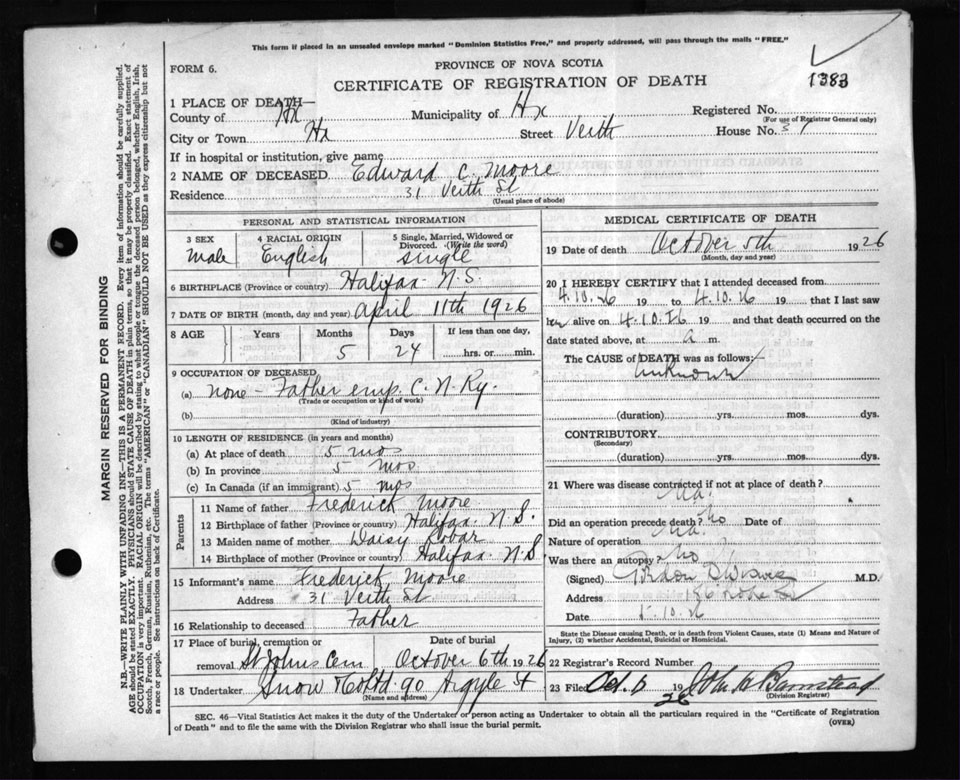 This form if placed in an unsealed envelope marked "Dominion Statistics Free," and properly addressed, will pass through the mails "FREE."
FORM 6.
PROVINCE OF NOVA SCOTIA
CERTIFICATE OF REGISTRATION OF DEATH
1383
1 PLACE OF DEATH—
County of Hx Municipality of Hx Registered No.
(For use of Registrar General only)
City or Town Hx Street Veith House No. 31
If in hospital or institution, give name
2 NAME OF DECEASED Edward C. Moore
Residence 31 Veith St
(Usual place of abode)
PERSONAL AND STATISTICAL INFORMATION
3 SEX 4 RACIAL ORIGIN 5 Single, Married, Widowed or Divorced. (Write the word)
Male English single
6 BIRTHPLACE (Province or country) Halifax N.S.
7 DATE OF BIRTH (month, day and year) April 11th 1926
8 AGE Years Months Days If less than one day,
5 24 hrs. or min.
9 OCCUPATION OF DECEASED
(a) none - Father emp. C. N. Ry.
(Trade or occupation or kind of work)
(b)
(Kind of industry)
10 LENGTH OF RESIDENCE (in years and months)
(a) At place of death 5 mos
(b) In province 5 mos.
(c) In Canada (if an immigrant) 5 mos
Parents
11 Name of father Frederick Moore
12 Birthplace of father (Province or country) Halifax N.S.
13 Maiden name of mother Daisy
14 Birthplace of mother (Province or country) Halifax N.S
15 Informant's name Frederick Moore
Address 31 Veith St
16 Relationship to deceased Father
17 Place of burial, cremation or Date of burial
removal St Johns Cem October 6th 1926
18 Undertaker Snow & Co Ltd. 90 Argyle St
(Name and address)
MEDICAL CERTIFICATE OF DEATH
19 Date of death October 5th 1926
(Month, day and year)
20 I HEREBY CERTIFY that I attended deceased from
4.10.26 19 to 4.10.26 19 that I last saw
him alive on 4.10.26 19 and that death occurred on the
date stated above, at a m.
The CAUSE of DEATH was as follows:
Unknown
(duration) yrs. mos. dys.
CONTRIBUTORY
(Secondary)
(duration) yrs. mos. dys.
21 Where was disease contracted if not at place of death?
Did an operation precede death? No Date of
Nature of operation
Was there an autopsy? No
(Signed) Gordon M.D.
Address
Date 5.10.26
State the Disease causing Death, or in death from Violent Causes, state (1) Means and Nature of
Injury, (2) whether Accidental, Suicidal or Homicidal.
22 Registrar's Record Number
23 Filed Oct. 6 1926 John A Barnstead
(Division Registrar)
SEC. 46—Vital Statistics Act makes it the duty of the Undertaker or person acting as Undertaker to obtain all the particulars required in the "Certificate of Registration
of Death" and to file the same with the Division Registrar who shall issue the burial permit.
(OVER)
MARGIN RESERVED FOR BINDING
N.B.—WRITE PLAINLY WITH UNFADING INK—THIS IS A PERMANENT RECORD. Every item of information should be carefully supplied.
AGE should be stated EXACTLY. PHYSICIANS should STATE CAUSE OF DEATH in plain terms, so that it may be properly classified. Exact statement of
OCCUPATION is very important. RACIAL ORIGIN will be described by stating to what people or tongue the deceased person belonged, whether English, Irish,
Scotch, French, German, Russian, Ruthenian, etc. The terms "AMERICAN" or "CANADIAN" SHOULD NOT BE USED as they express citizenship but not
a race or people. See instructions on back of Certificate.